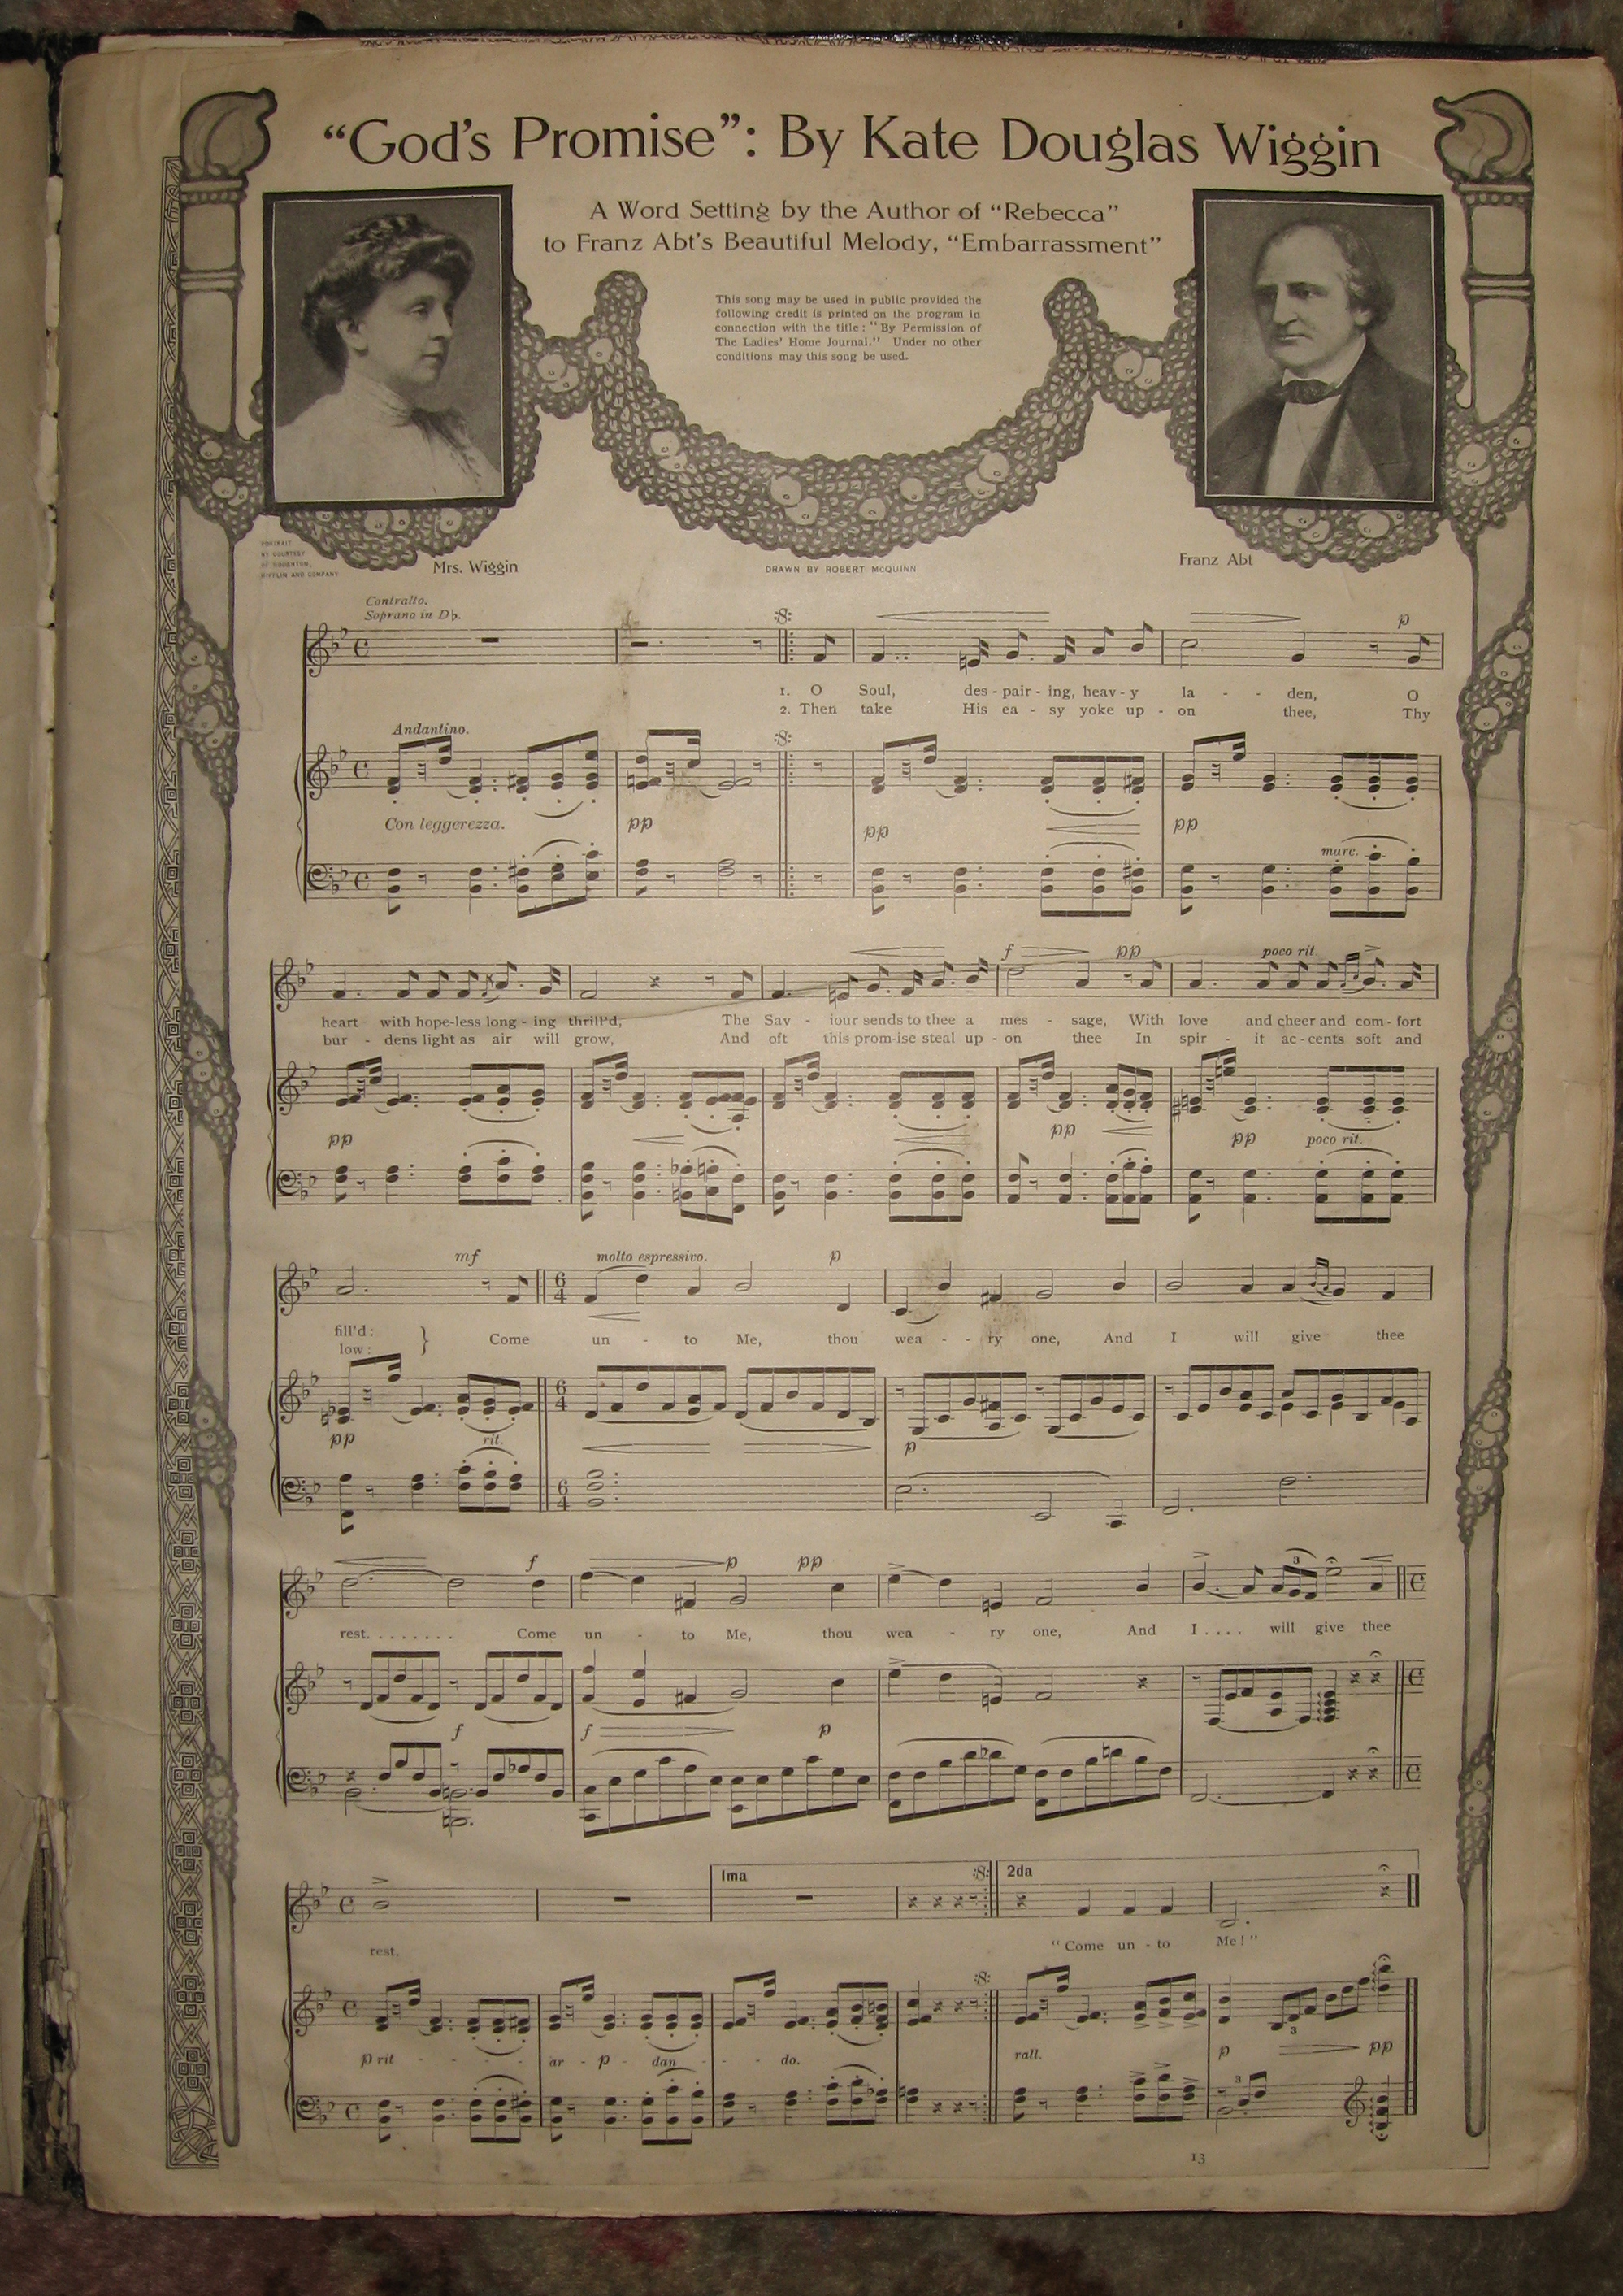 “God’s Promise”: By Kate Douglas Wiggin
A Word Setting by the Author of “Rebecca”
to Franz Abt’s Beautiful Melody, “Embarrassment”
This song may be used in public provided the
following credit is printed on the program in
connection with the title: “By Permission of
The Ladies’ Home Journal.” Under no other
conditions may this song be used.
PORTRAIT
BY COURTESY
OF HOUGHTON,
MIFFLIN AND COMPANY
Mrs. Wiggin
DRAWN BY ROBERT McQUINN
Franz Abt
Contralto.
Soprano in D♭.
:8:
p
1. O Soul, des - pair - ing, heav - y la - - den, O
2. Then take His ea - sy yoke up - on thee, Thy
Andantino.
:8:
Con leggerezza.
pp pp pp
marc.
f pp poco rit.
heart with hope-less long - ing thrill’d, The Sav - iour sends to thee a mes - sage, With love and cheer and com - fort
bur - dens light as air will grow, And oft this prom-ise steal up - on thee In spir - it ac - cents soft and
pp pp pp poco rit.
mf molto espressivo. p
6
4
fill’d: } Come un - to Me, thou wea - - ry one, And I will give thee
low:
6
4
pp rit. p
6
4
f p pp 3
rest. . . . . . . . Come un - to Me, thou wea - ry one, And I . . . . will give thee
f f p
1ma :8: 2da
rest. “Come un - to Me!”
:8:
p rit - - - - ar - p - dan - - - do. rall. p 3 pp
3
13